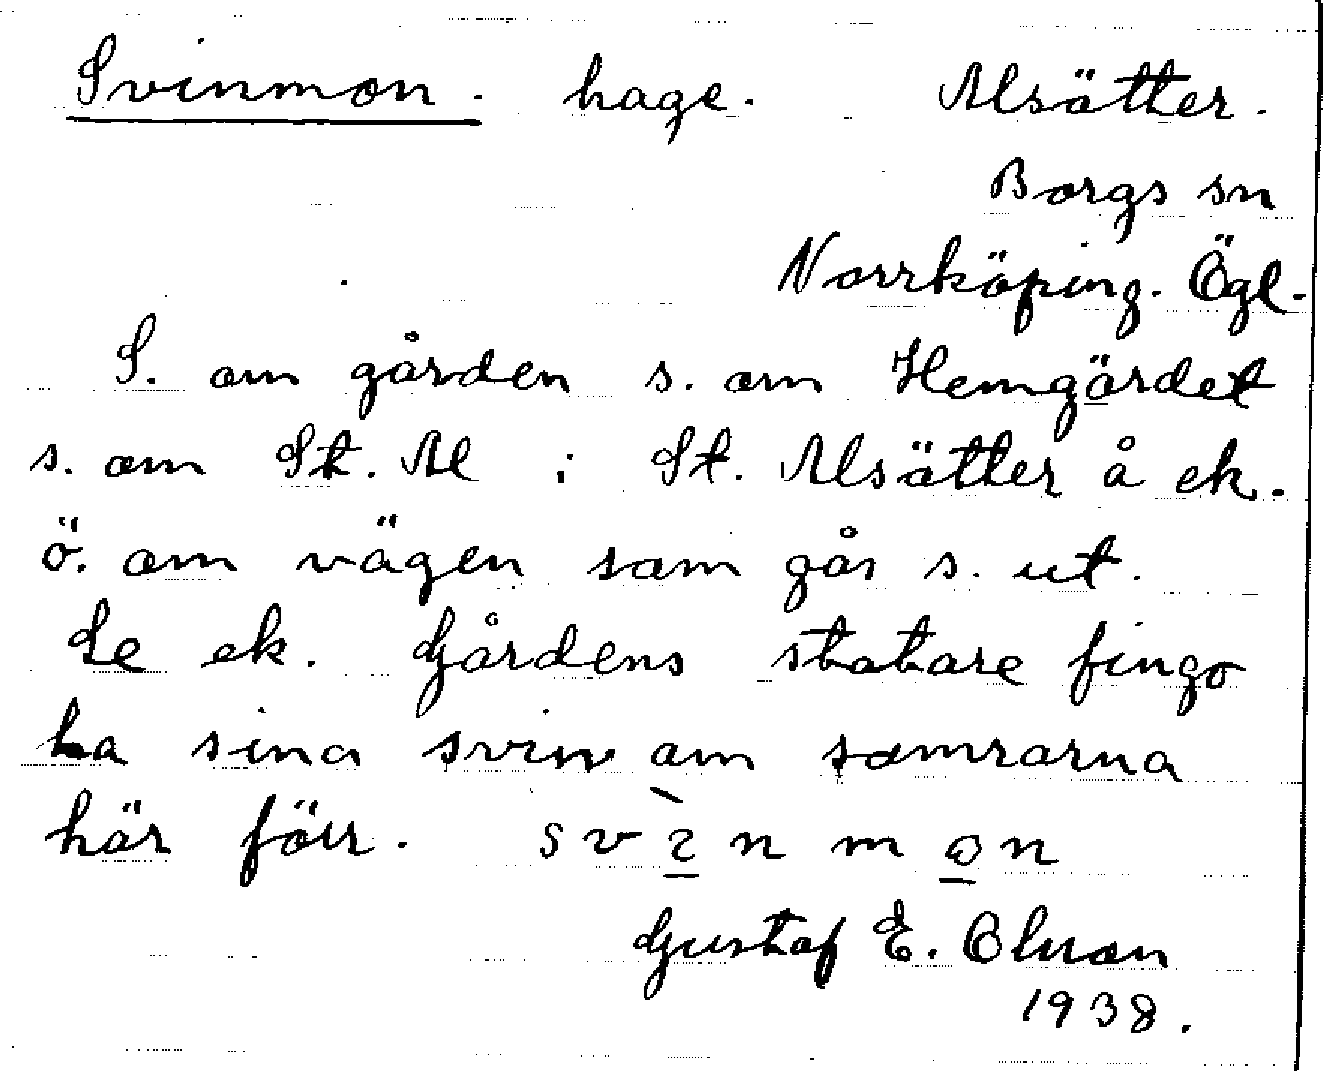 Svinmon. hage. Alsätter.
Borgs sn
Norrköping. Ögl.
S. om gården s. om Hemgärdet
s. om St. Al i St. Alsätter å ek.
ö. om vägen som går s. ut.
Se ek. Gårdens statare fingo
ha sina svin om somrarna
här förr. svinmon
Gustaf E. Olsson
1938.